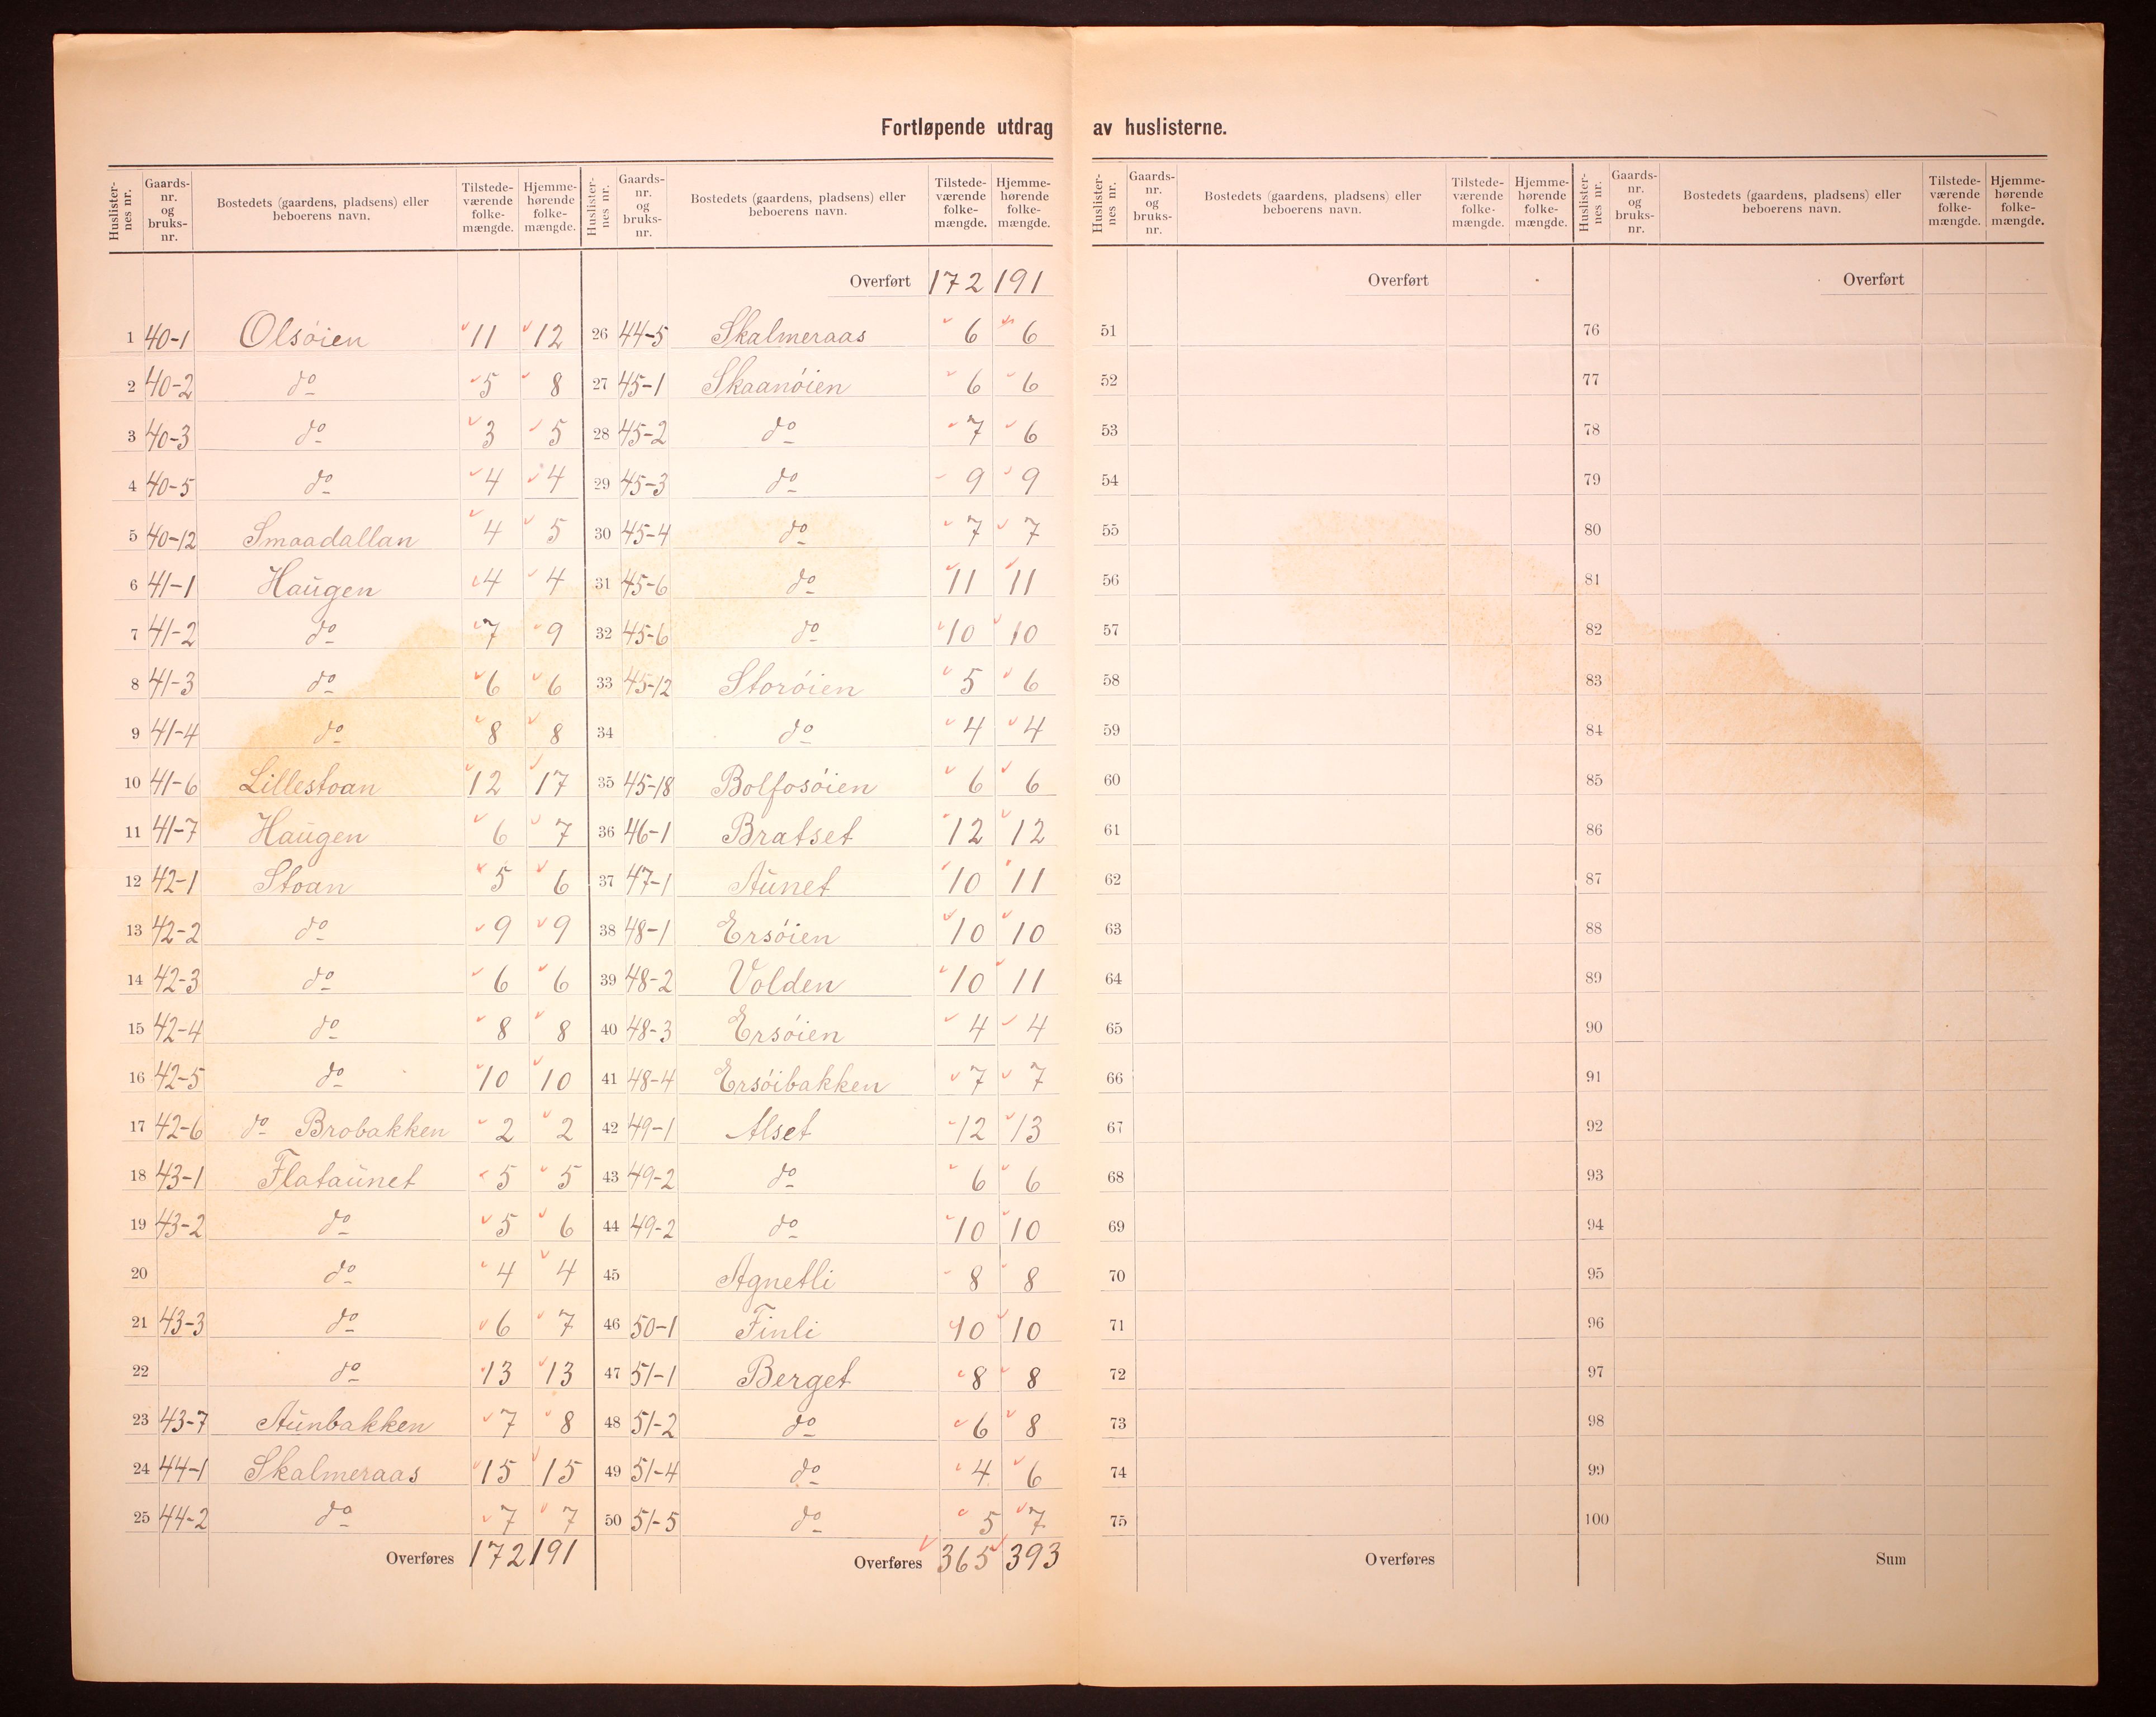 Fortløpende utdrag av huslisterne.
Huslisternes nr. Gaards-nr. og bruks-nr. Bostedets (gaardens, pladsens) eller beboerens navn. Tilstedeværende folkemængde. Hjemmehørende folkemængde.
1 40-1 Olsöien 11 12
2 40-2 do 5 8
3 40-3 do 3 5
4 40-5 do 4 4
5 40-12 Smaadallan 4 5
6 41-1 Haugen 4 4
7 41-2 do 7 9
8 41-3 do 6 6
9 41-4 do 8 8
10 41-6 Lillestoan 12 17
11 41-7 Haugen 6 7
12 42-1 Stoan 5 6
13 42-2 do 9 9
14 42-3 do 6 6
15 42-4 do 8 8
16 42-5 do 10 10
17 42-6 do Brobakken 2 2
18 43-1 Flataunet 5 5
19 43-2 do 5 6
20 do 4 4
21 43-3 do 6 7
22 do 13 13
23 43-7 Aunbakken 7 8
24 44-1 Skalmeraas 15 15
25 44-2 do 7 7
Overføres 172 191
Huslisternes nr. Gaards-nr. og bruks-nr. Bostedets (gaardens, pladsens) eller beboerens navn. Tilstedeværende folkemængde. Hjemmehørende folkemængde.
Overført 172 191
26 44-5 Skalmeraas 6 6
27 45-1 Skaanöien 6 6
28 45-2 do 7 6
29 45-3 do 9 9
30 45-4 do 7 7
31 45-6 do 11 11
32 45-6 do 10 10
33 45-12 Storöien 5 6
34 do 4 4
35 45-18 Bolfosöien 6 6
36 46-1 Bratset 12 12
37 47-1 Aunet 10 11
38 48-1 Ersöien 10 10
39 48-2 Volden 10 11
40 48-3 Ersöien 4 4
41 48-4 Ersöibakken 7 7
42 49-1 Alset 12 13
43 49-2 do 6 6
44 49-2 do 10 10
45 Agnetli 8 8
46 50-1 Finli 10 10
47 51-1 Berget 8 8
48 51-2 do 6 8
49 51-4 do 4 6
50 51-5 do 5 7
Overføres 365 393
Huslisternes nr. Gaards-nr. og bruks-nr. Bostedets (gaardens, pladsens) eller beboerens navn. Tilstedeværende folkemængde. Hjemmehørende folkemængde.
Overført
51
52
53
54
55
56
57
58
59
60
61
62
63
64
65
66
67
68
69
70
71
72
73
74
75
Overføres
Huslisternes nr. Gaards-nr. og bruks-nr. Bostedets (gaardens, pladsens) eller beboerens navn. Tilstedeværende folkemængde. Hjemmehørende folkemængde.
Overført
76
77
78
79
80
81
82
83
84
85
86
87
88
89
90
91
92
93
94
95
96
97
98
99
100
Sum